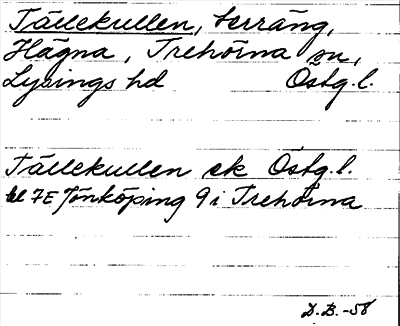 Tällekullen, terräng,
Hägna, Trehörna sn,
Lysings hd Östg.l.
Tällekullen ek Östg.l.
bl 7E Jönköping 9i Trehörna
D.B.-58